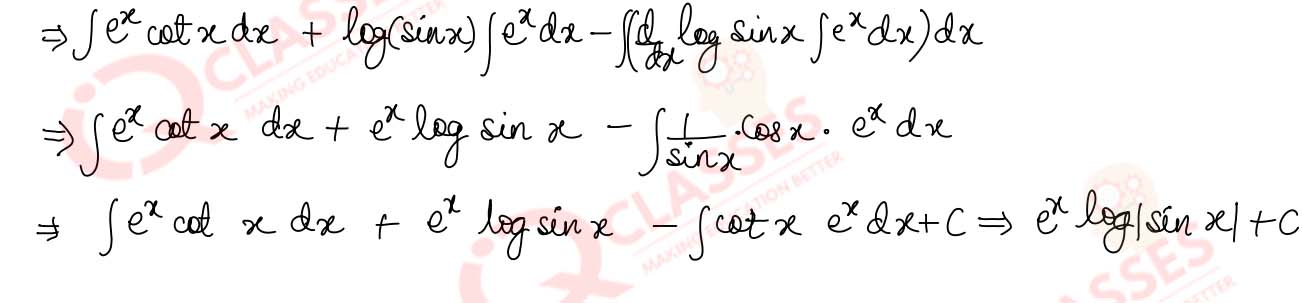 ⇒ ∫eˣ cot x dx + log(sinx) ∫eˣ dx − ∫(d/dx log sinx ∫eˣ dx) dx
⇒ ∫eˣ cot x dx + eˣ log sin x − ∫ 1/sinx · cosx · eˣ dx
⇒ ∫eˣ cot x dx + eˣ log sinx − ∫cot x eˣ dx + C ⇒ eˣ log|sin x| + C
CLASSES
MAKING EDUCA
CLASSES
TION BETTER
CLASSES
MAKING
SSES
TTER